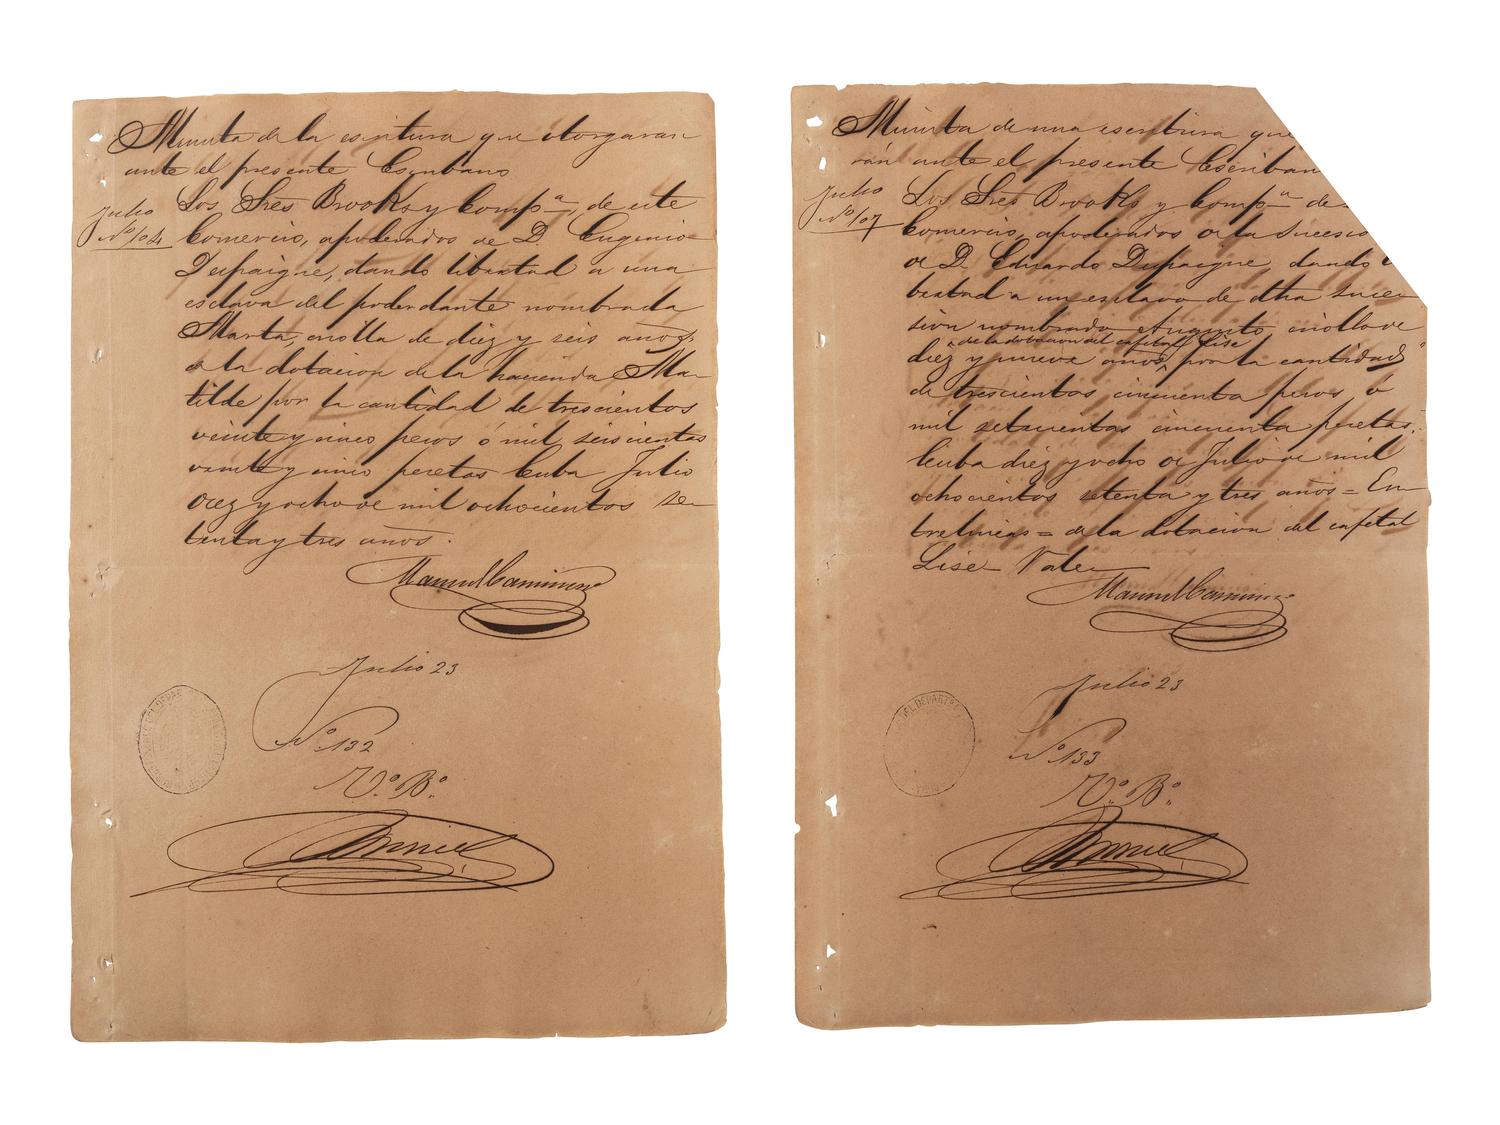 Minuta de la escritura que otorgaran
ante el presente Escribano
Julio
Nº 104
Los Sres Brooks y Compª, de este
Comercio, apoderados de D. Eugenio
Dupaigne, dando libertad a una
esclava del poderdante nombrada
Marta, criolla de diez y seis años,
a la dotacion de la hacienda Ma-
tilde por la cantidad de trescientos
veinte y cinco pesos ó mil seiscientas
veinte y cinco pesetas Cuba Julio
diez y ocho de mil ochocientos se-
tenta y tres años.
Manuel Caminero
Julio 23
Nº 132
Vº Bº
DEL DEPAR
Minuta de una escritura que
rán ante el presente Escriban
Julio
Nº 107
Los Sres Brooks y Compª de
Comercio, apoderados de la Sucesio
de D. Eduardo Dupaigne, dando l
bertad a un esclavo de dha suce-
sion nombrado Augusto, criollo de
de la dotacion del cafetal Lise
diez y nueve años, por la cantidad
de trescientos cincuenta pesos ó
mil setecientas cincuenta pesetas.
Cuba diez y ocho de Julio de mil
ochocientos setenta y tres años = En-
trelineas = de la dotacion del cafetal
Lise Vale
Manuel Caminero
Julio 23
Nº 133
Vº Bº
DEL DEPART